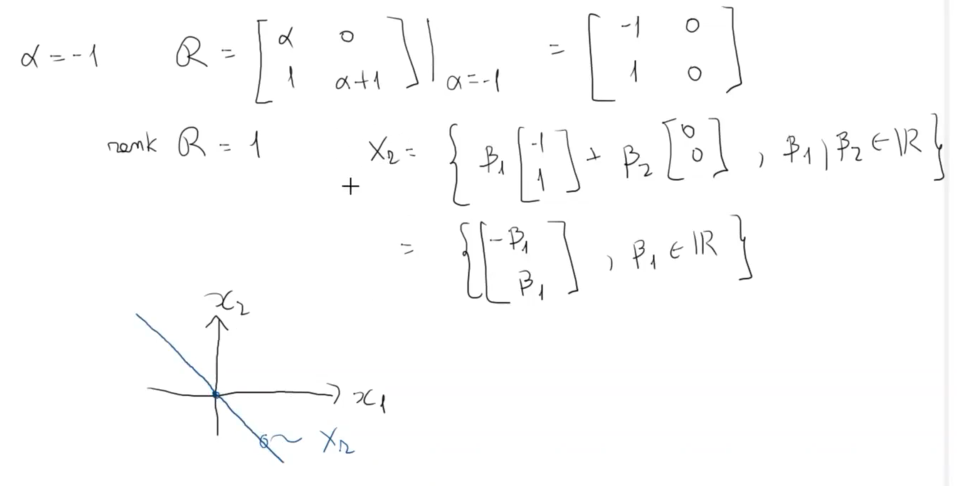 α = -1 R = [α 0; 1 α+1] |α=-1 = [-1 0; 1 0]
rank R = 1 XR = { β1 [-1; 1] + β2 [0; 0] , β1, β2 ∈ ℝ }
= { [-β1; β1] , β1 ∈ ℝ }
x2
x1
XR